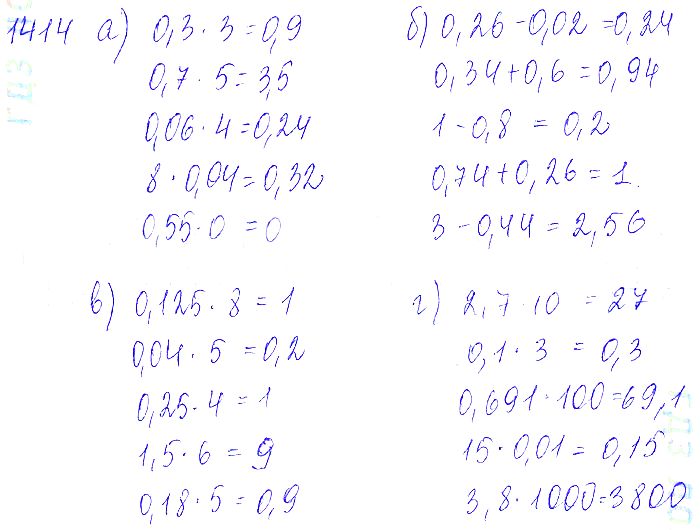 1414 а) 0,3 · 3 = 0,9
0,7 · 5 = 3,5
0,06 · 4 = 0,24
8 · 0,04 = 0,32
0,55 · 0 = 0
б) 0,26 - 0,02 = 0,24
0,34 + 0,6 = 0,94
1 - 0,8 = 0,2
0,74 + 0,26 = 1.
3 - 0,44 = 2,56
в) 0,125 · 8 = 1
0,04 · 5 = 0,2
0,25 · 4 = 1
1,5 · 6 = 9
0,18 · 5 = 0,9
г) 2,7 · 10 = 27
0,1 · 3 = 0,3
0,691 · 100 = 69,1
15 · 0,01 = 0,15
3,8 · 1000 = 3800